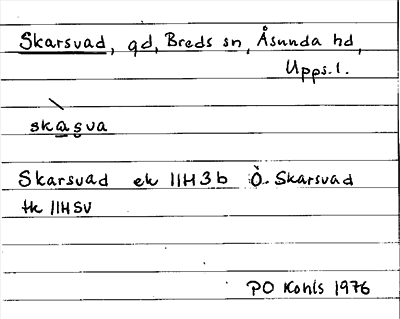 Skarsvad, gd, Breds sn, Åsunda hd,
Upps. l.
skạsva
Skarsvad ek 11H3b Ö. Skarsvad
tk 11HSV
PO Kohls 1976